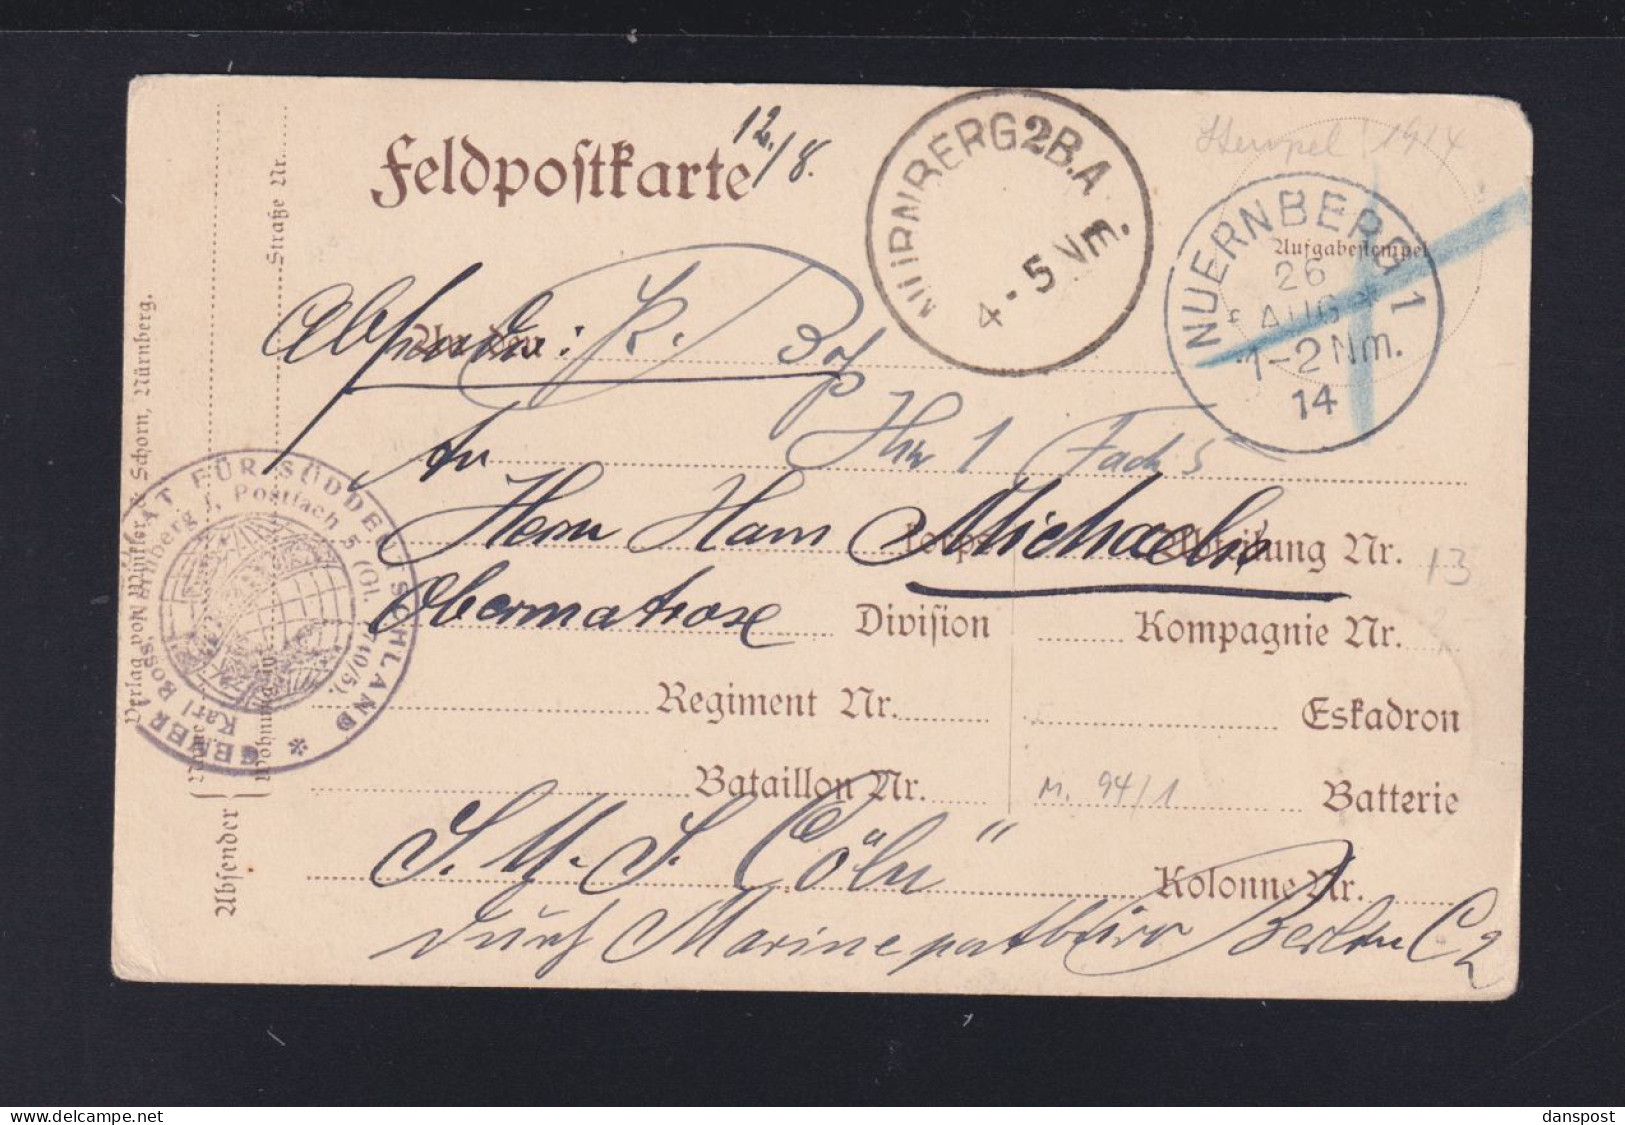 Feldpostkarte
12./8.
NÜRNBERG 2 B.A
4-5 Nm.
Stempel 1914
Aufgabestempel
NUERNBERG 1
26
AUG
1-2 Nm.
14
Absender: K.
An den
An
Fach 5
Herrn Hans Michaelis
Korps Abteilung Nr. 13
Obermatrose Division Kompagnie Nr.
Regiment Nr. Eskadron
Bataillon Nr. M. 94/1 Batterie
S. M. S. Cöln"
Kolonne Nr.
durch Marinepostbüro Berlin C 2
Verlag von Winkler & Schorn, Nürnberg.
Absender { Name
Wohnung Straße Nr.
FÜR SÜDDEUTSCHLAND *
Karl Boss, Nürnberg I, Postfach 5 (Gl. 740/5).
danspost
www.delcampe.net